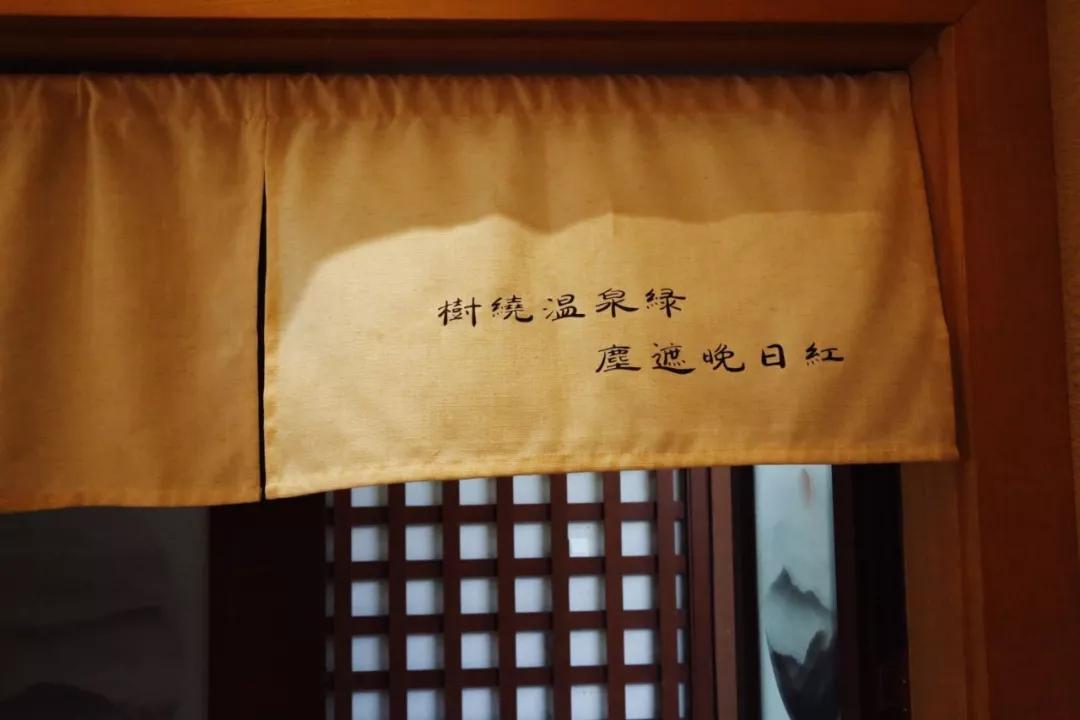 樹繞温泉緑
塵遮晚日紅